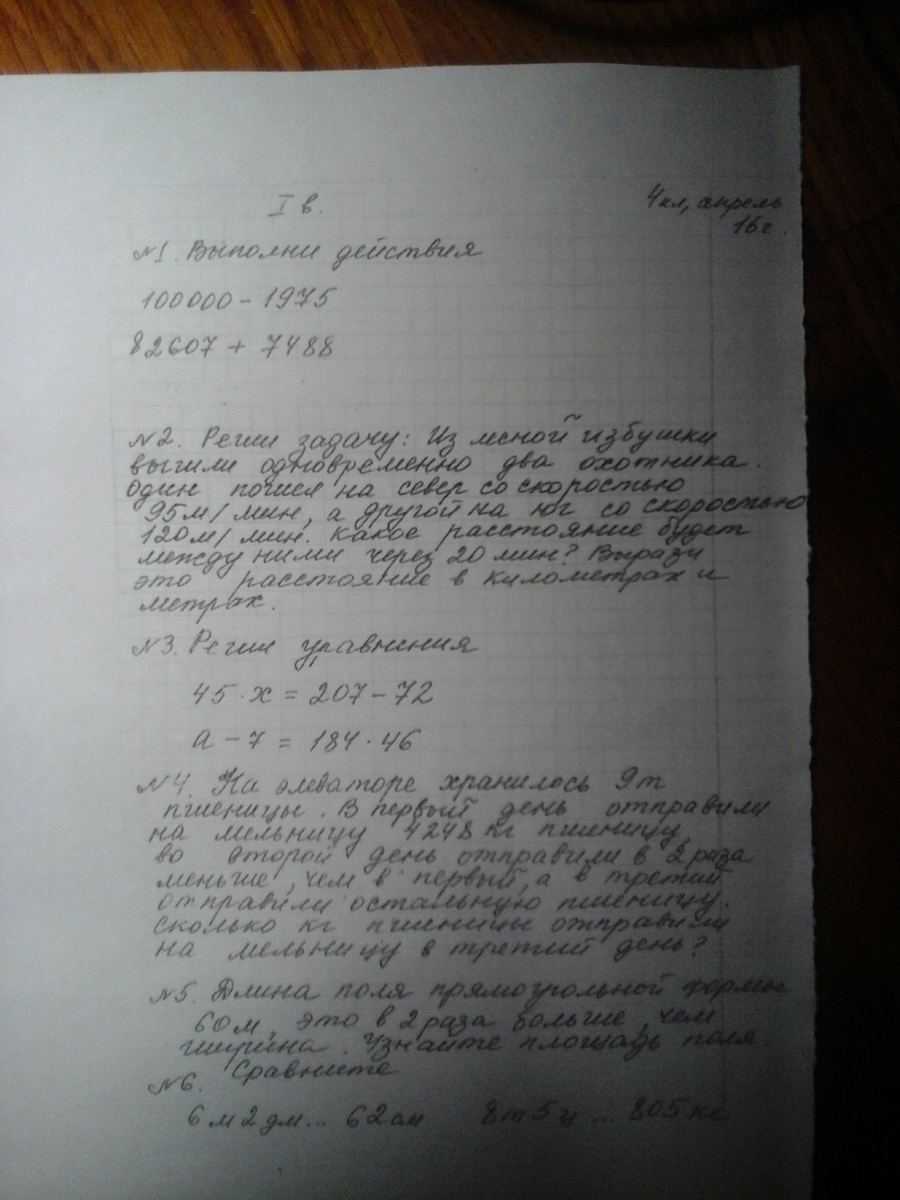 I в.
4 кл, апрель
16 г.
№1. Выполни действия
100000 - 1975
82607 + 7488
№2. Реши задачу: Из лесной избушки
вышли одновременно два охотника.
Один пошел на север со скоростью
95 м/мин, а другой на юг со скоростью
120 м/мин. Какое расстояние будет
между ними через 20 мин? Вырази
это расстояние в километрах и
метрах.
№3. Реши уравнения
45 · x = 207 - 72
a - 7 = 184 · 46
№4. На элеваторе хранилось 9т
пшеницы. В первый день отправили
на мельницу 4248 кг пшеницу,
во второй день отправили в 2 раза
меньше, чем в первый, а в третий
отправили остальную пшеницу.
Сколько кг пшеницы отправили
на мельницу в третий день?
№5. Длина поля прямоугольной формы
60 м, это в 2 раза больше, чем
ширина. Узнайте площадь поля.
№6. Сравните
6 м 2 дм ... 62 см 8 т 5 ц ... 805 кг